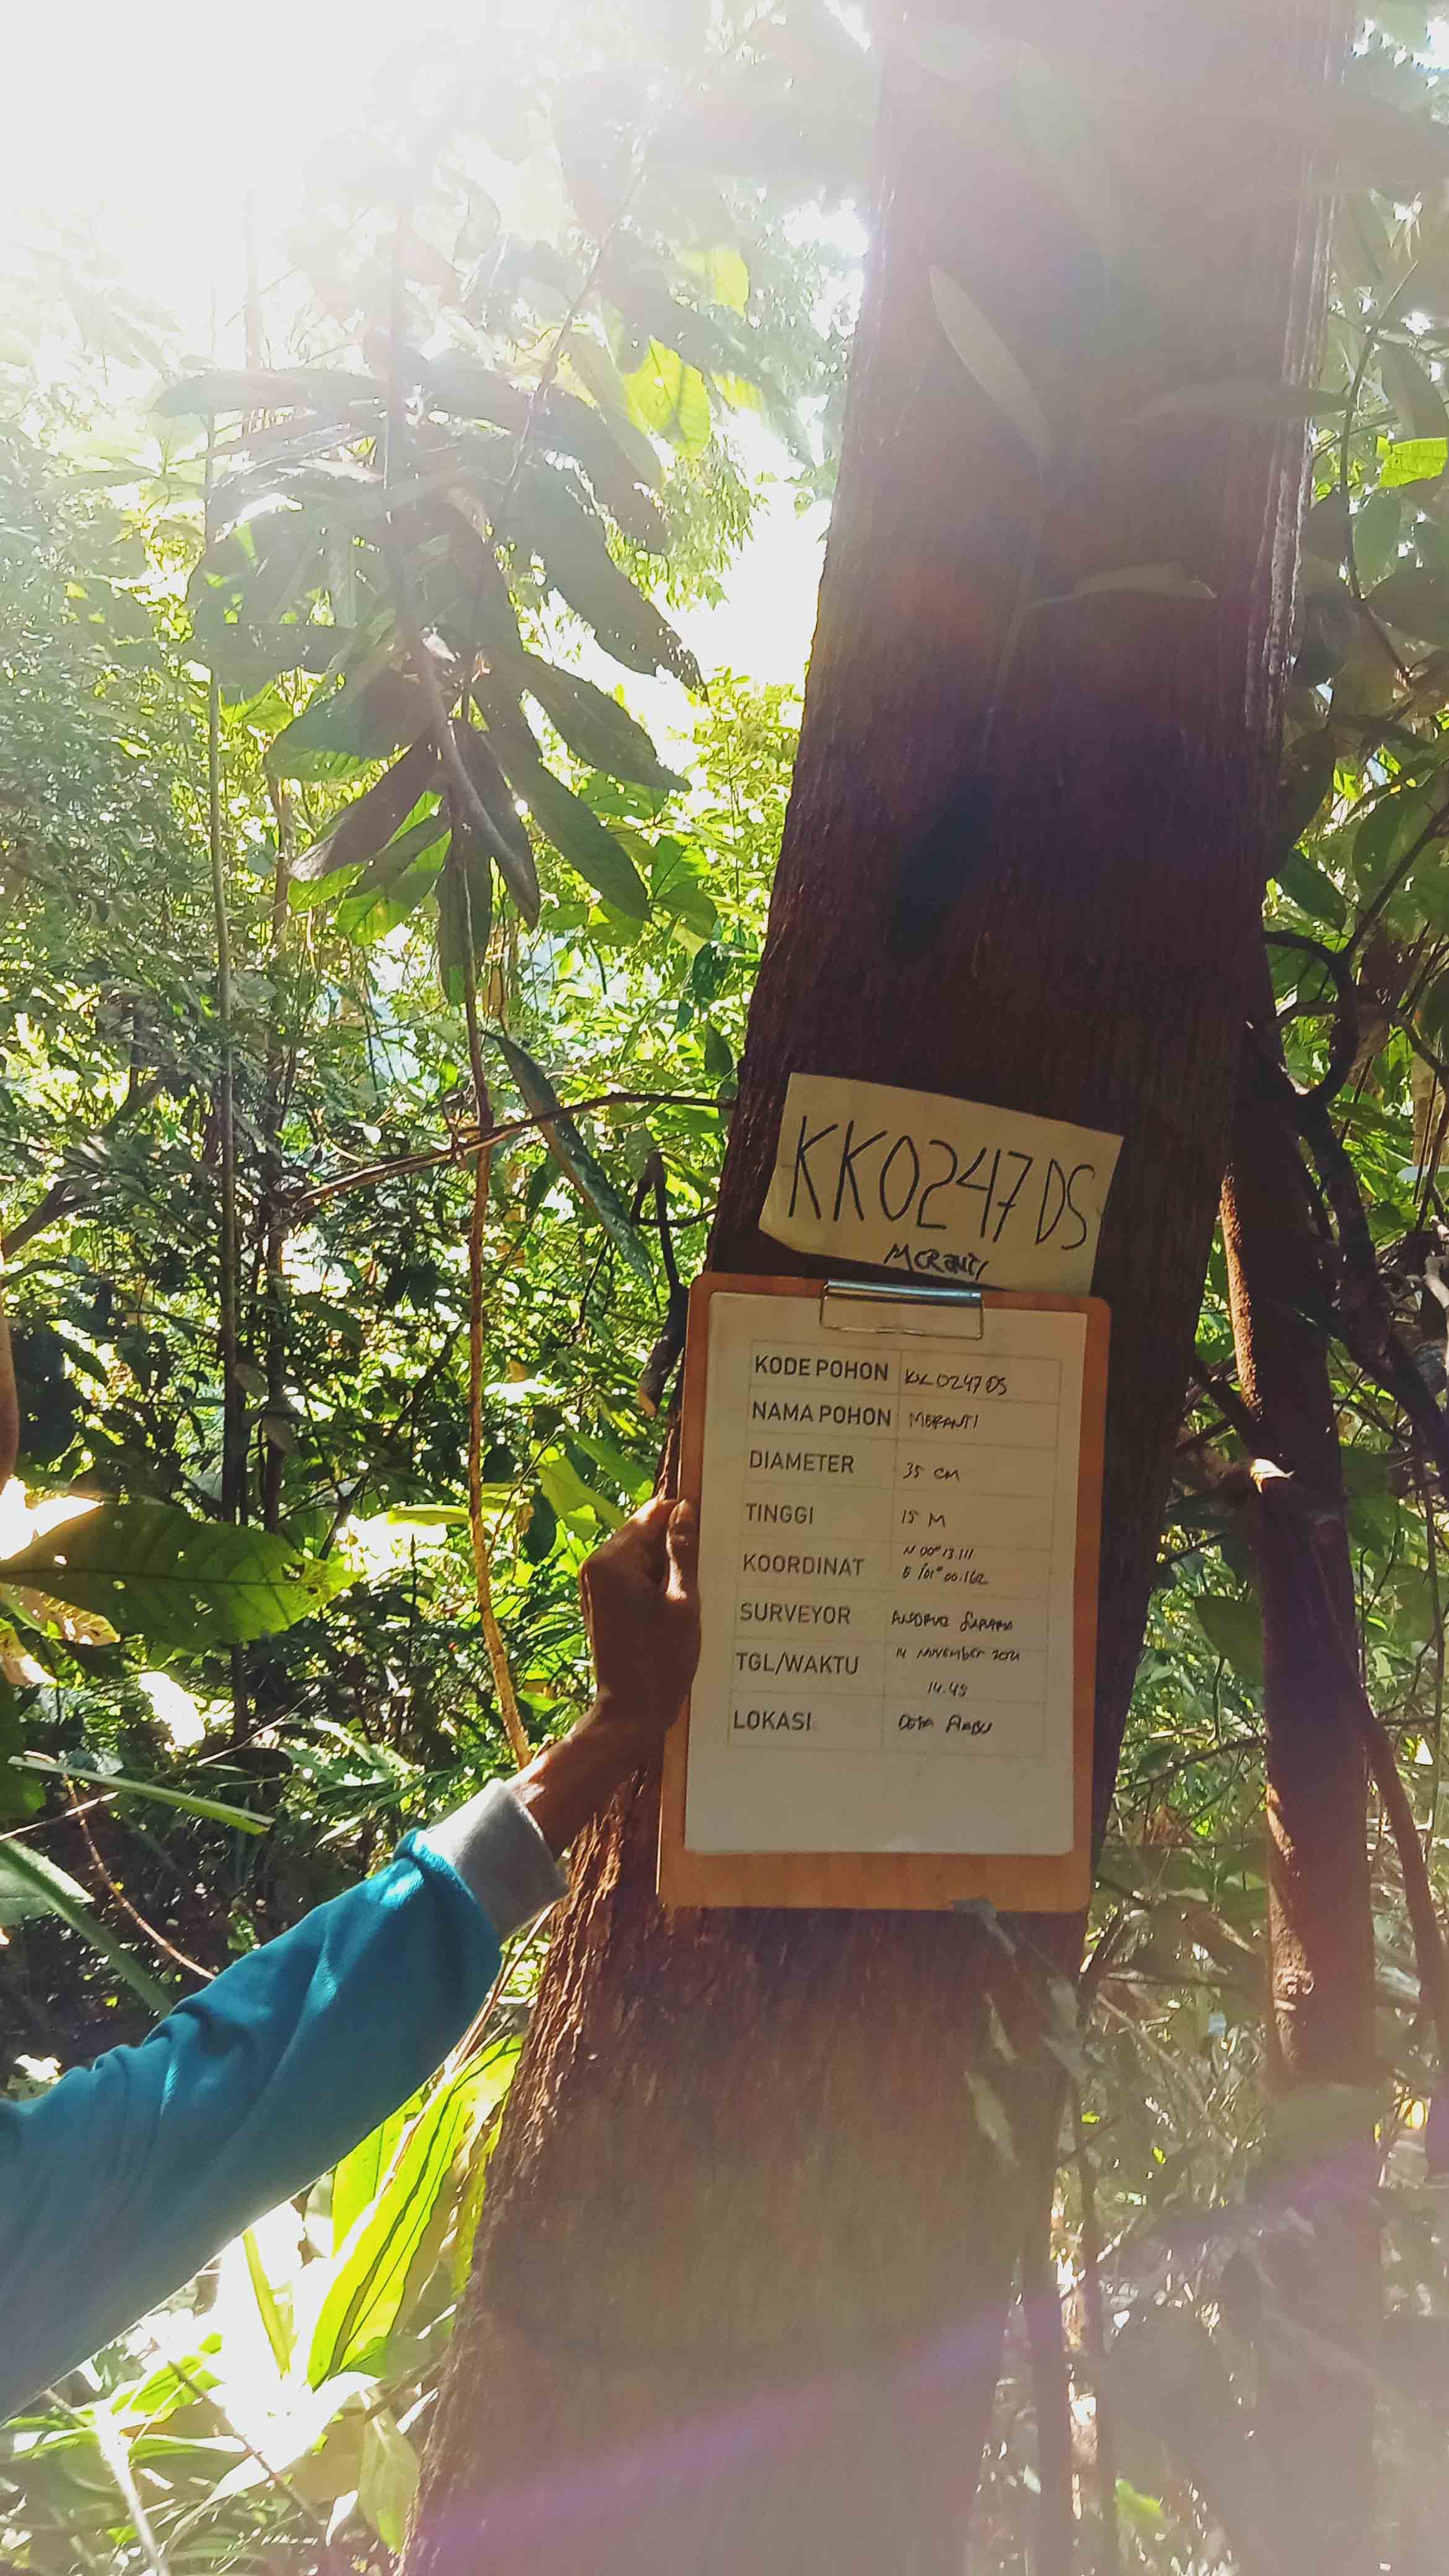 KK0247DS
MERANTI
KODE POHON KK0247DS
NAMA POHON MERANTI
DIAMETER 35 CM
TINGGI 15 M
KOORDINAT N 00° 13.111
E 101° 00.162
SURVEYOR
TGL/WAKTU 14 NOVEMBER 2021
14.45
LOKASI DESA